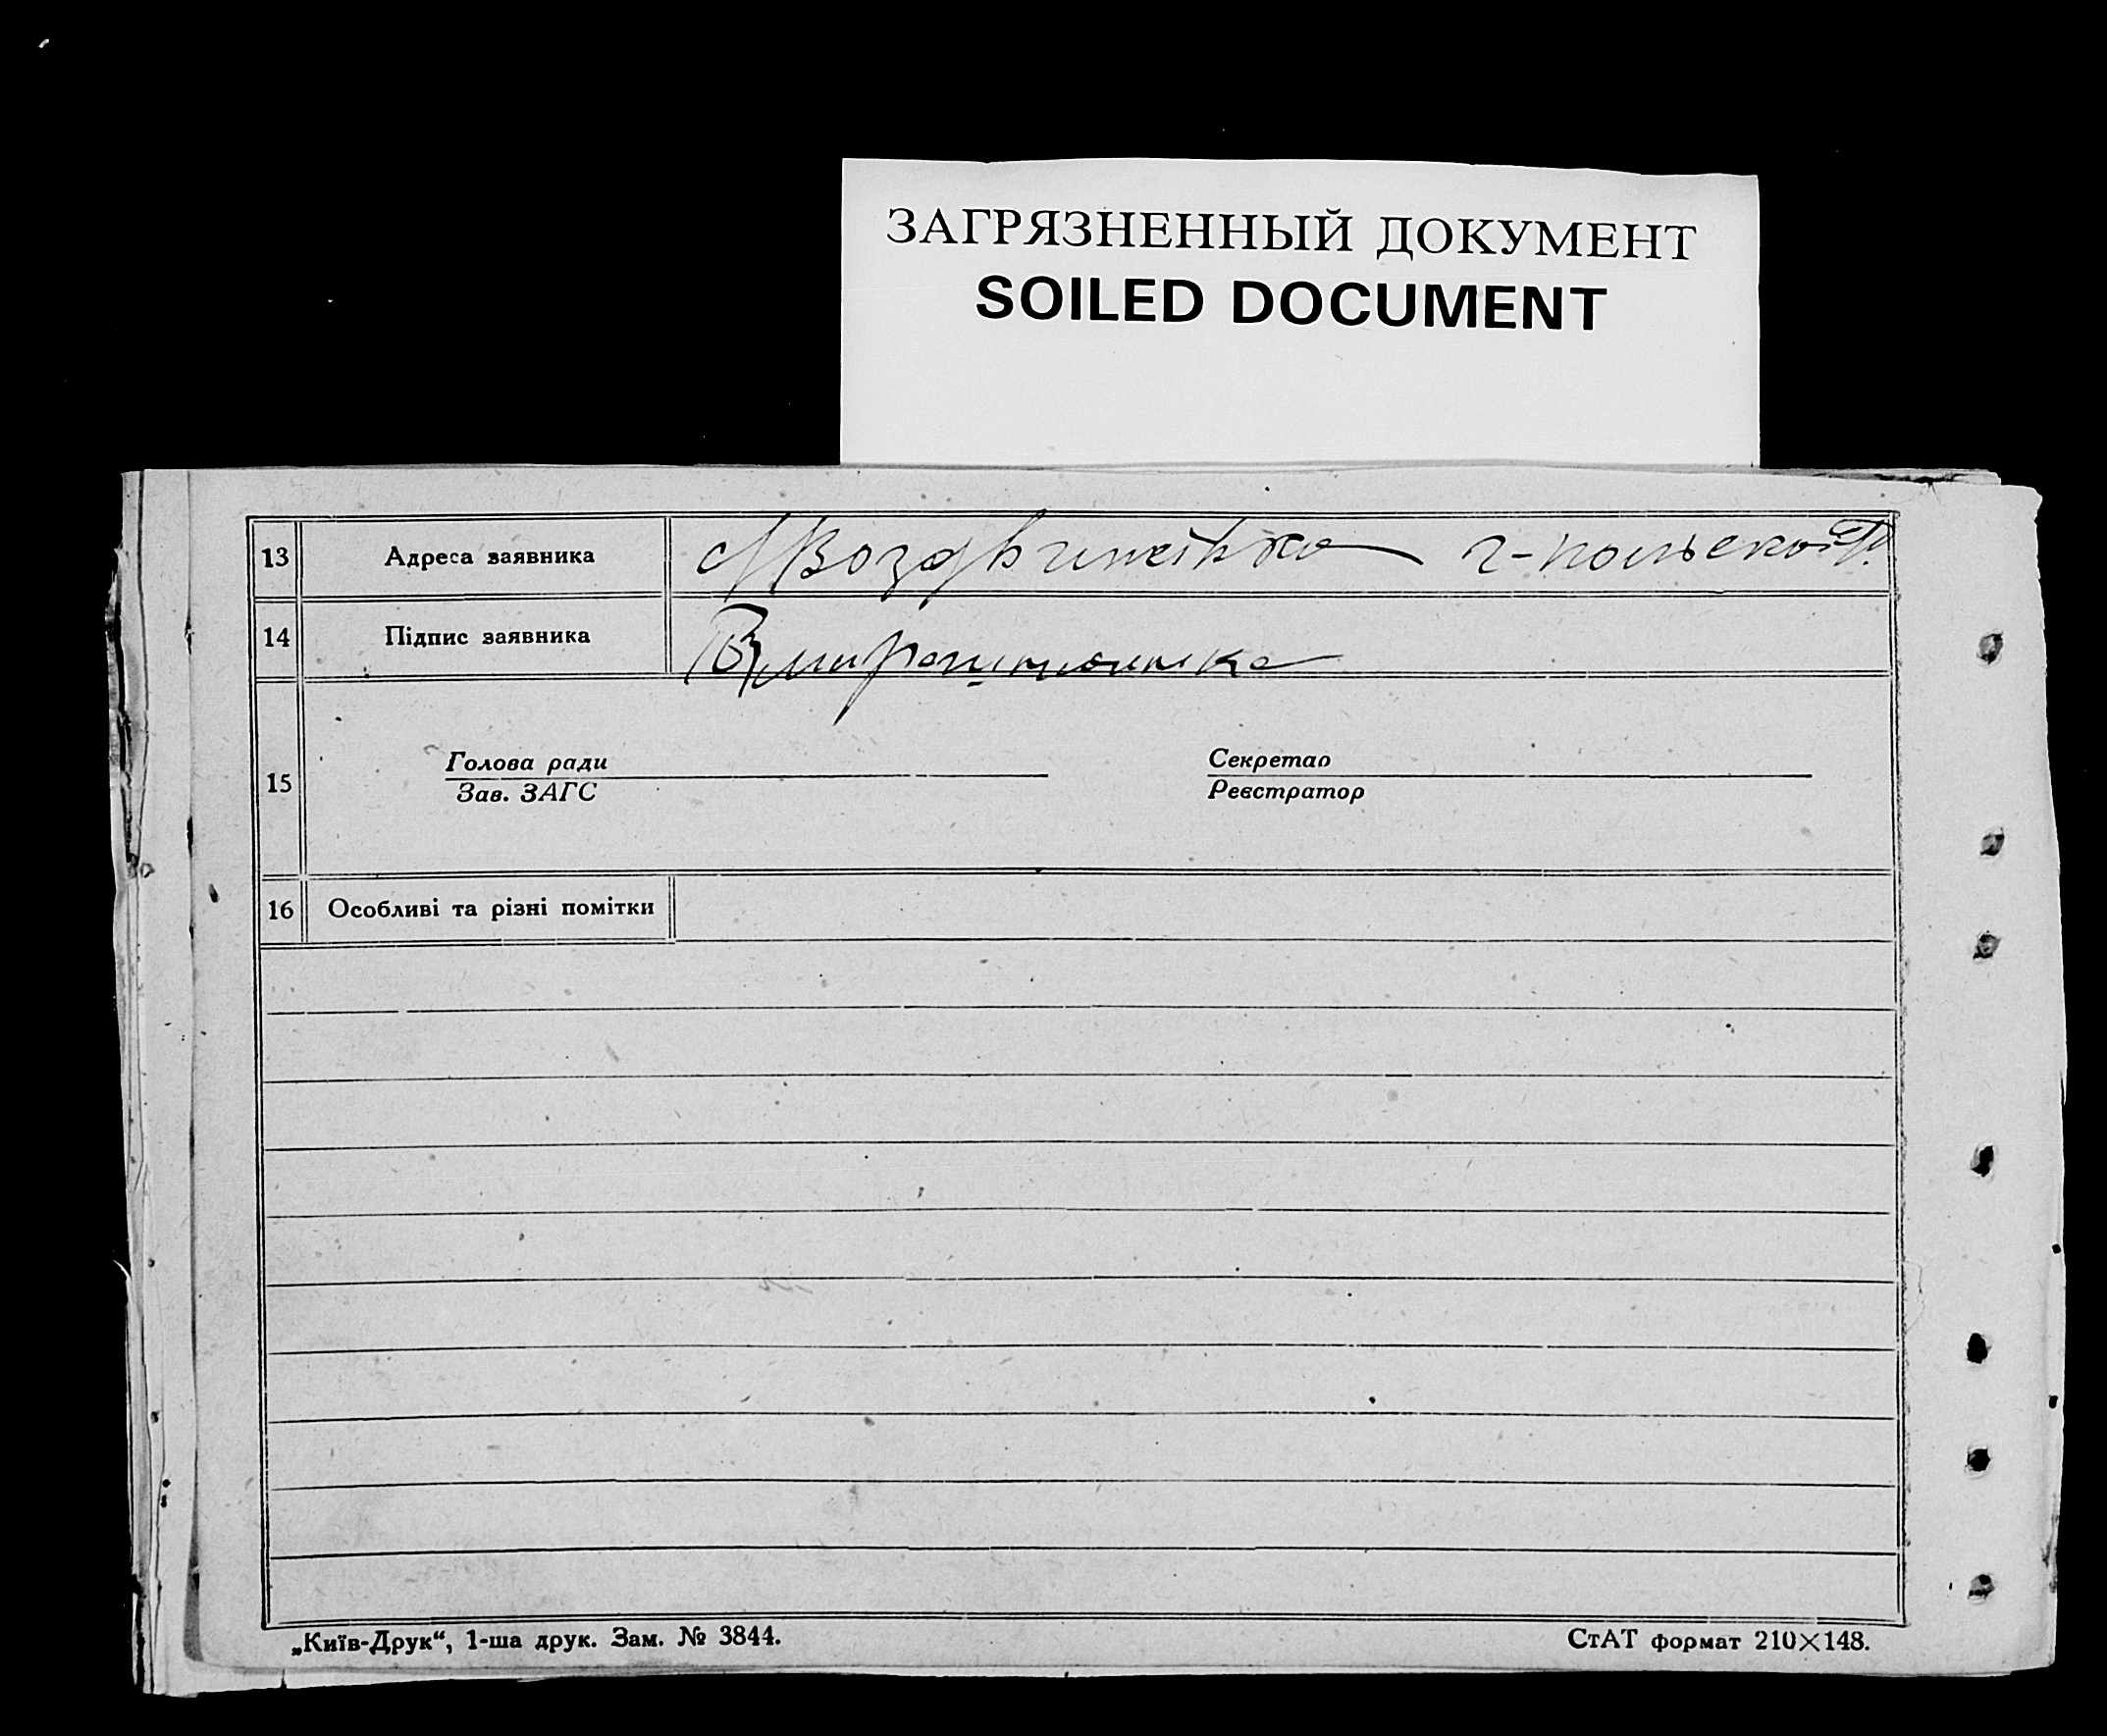 ЗАГРЯЗНЕННЫЙ ДОКУМЕНТ
SOILED DOCUMENT
13 Адреса заявника Воздвижівка г-польского р.
14 Підпис заявника
Голова ради Секретар
15
Зав. ЗАГС Реєстратор
16 Особливі та різні помітки
„Київ-Друк“, 1-ша друк. Зам. № 3844. СтАТ формат 210×148.